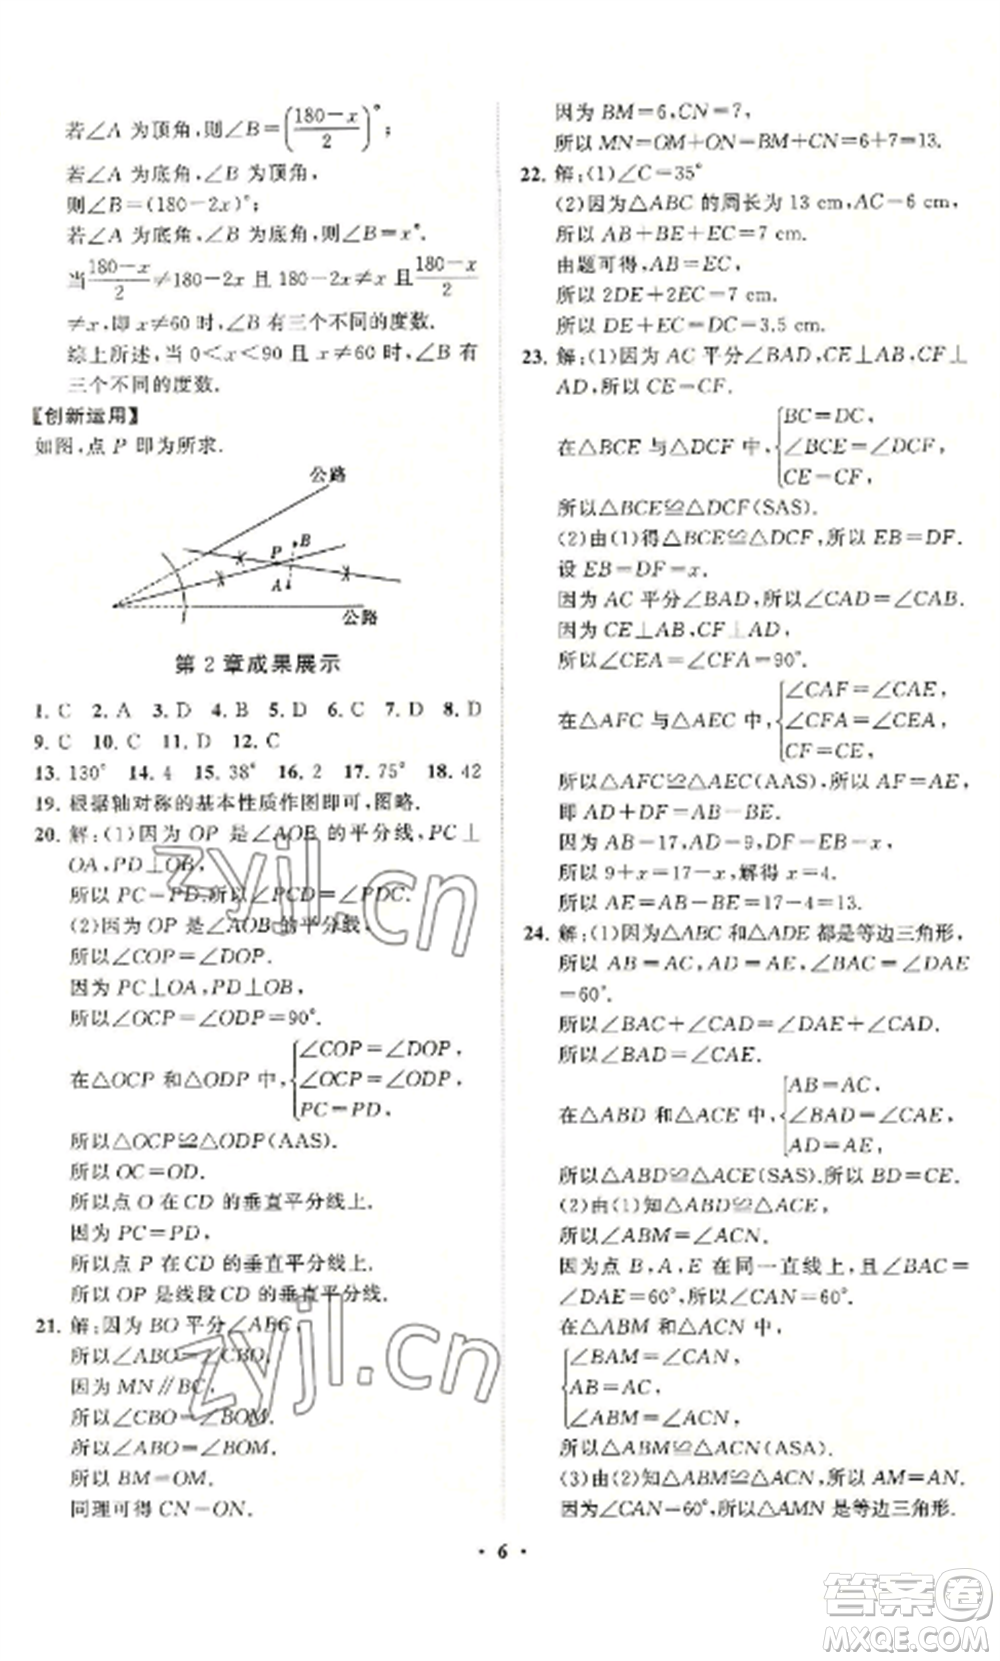 若∠A 为顶角,则∠B=((180-x)/2)°;
若∠A 为底角,∠B 为顶角,
则∠B=(180-2x)°;
若∠A 为底角,∠B 为底角,则∠B=x°.
当(180-x)/2≠180-2x 且 180-2x≠x 且(180-x)/2
≠x,即 x≠60 时,∠B 有三个不同的度数.
综上所述,当 0<x<90 且 x≠60 时,∠B 有
三个不同的度数.
【创新运用】
如图,点 P 即为所求.
公路
P
B
A
公路
第 2 章成果展示
1. C 2. A 3. D 4. B 5. D 6. C 7. D 8. D
9. C 10. C 11. D 12. C
13. 130° 14. 4 15. 38° 16. 2 17. 75° 18. 42
19. 根据轴对称的基本性质作图即可,图略.
20. 解:(1)因为 OP 是∠AOB 的平分线,PC⊥
OA,PD⊥OB,
所以 PC=PD.所以∠PCD=∠PDC.
(2)因为 OP 是∠AOB 的平分线,
所以∠COP=∠DOP.
因为 PC⊥OA,PD⊥OB,
所以∠OCP=∠ODP=90°.
在△OCP 和△ODP 中,
∠COP=∠DOP,
∠OCP=∠ODP,
PC=PD,
所以△OCP≌△ODP(AAS).
所以 OC=OD.
所以点 O 在 CD 的垂直平分线上.
因为 PC=PD,
所以点 P 在 CD 的垂直平分线上.
所以 OP 是线段 CD 的垂直平分线.
21. 解:因为 BO 平分∠ABC,
所以∠ABO=∠CBO.
因为 MN∥BC,
所以∠CBO=∠BOM.
所以∠ABO=∠BOM.
所以 BM=OM.
同理可得 CN=ON.
因为 BM=6,CN=7,
所以 MN=OM+ON=BM+CN=6+7=13.
22. 解:(1)∠C=35°
(2)因为△ABC 的周长为 13 cm,AC=6 cm,
所以 AB+BE+EC=7 cm.
由题可得,AB=EC,
所以 2DE+2EC=7 cm.
所以 DE+EC=DC=3.5 cm.
23. 解:(1)因为 AC 平分∠BAD,CE⊥AB,CF⊥
AD,所以 CE=CF.
在△BCE 与△DCF 中,
BC=DC,
∠BCE=∠DCF,
CE=CF,
所以△BCE≌△DCF(SAS).
(2)由(1)得△BCE≌△DCF,所以 EB=DF.
设 EB=DF=x.
因为 AC 平分∠BAD,所以∠CAD=∠CAB.
因为 CE⊥AB,CF⊥AD,
所以∠CEA=∠CFA=90°.
在△AFC 与△AEC 中,
∠CAF=∠CAE,
∠CFA=∠CEA,
CF=CE,
所以△AFC≌△AEC(AAS),所以 AF=AE,
即 AD+DF=AB-BE.
因为 AB=17,AD=9,DF=EB=x,
所以 9+x=17-x,解得 x=4.
所以 AE=AB-BE=17-4=13.
24. 解:(1)因为△ABC 和△ADE 都是等边三角形,
所以 AB=AC,AD=AE,∠BAC=∠DAE
=60°.
所以∠BAC+∠CAD=∠DAE+∠CAD.
所以∠BAD=∠CAE.
在△ABD 和△ACE 中,
AB=AC,
∠BAD=∠CAE,
AD=AE,
所以△ABD≌△ACE(SAS),所以 BD=CE.
(2)由(1)知△ABD≌△ACE,
所以∠ABM=∠ACN.
因为点 B,A,E 在同一直线上,∠BAC=
∠DAE=60°,所以∠CAN=60°.
在△ABM 和△ACN 中,
∠BAM=∠CAN,
AB=AC,
∠ABM=∠ACN,
所以△ABM≌△ACN(ASA).
(3)由(2)知△ABM≌△ACN,所以 AM=AN.
因为∠CAN=60°,所以△AMN 是等边三角形.
· 6 ·
zyjl.cn
zyjl.cn
答案卷
MXQE.COM